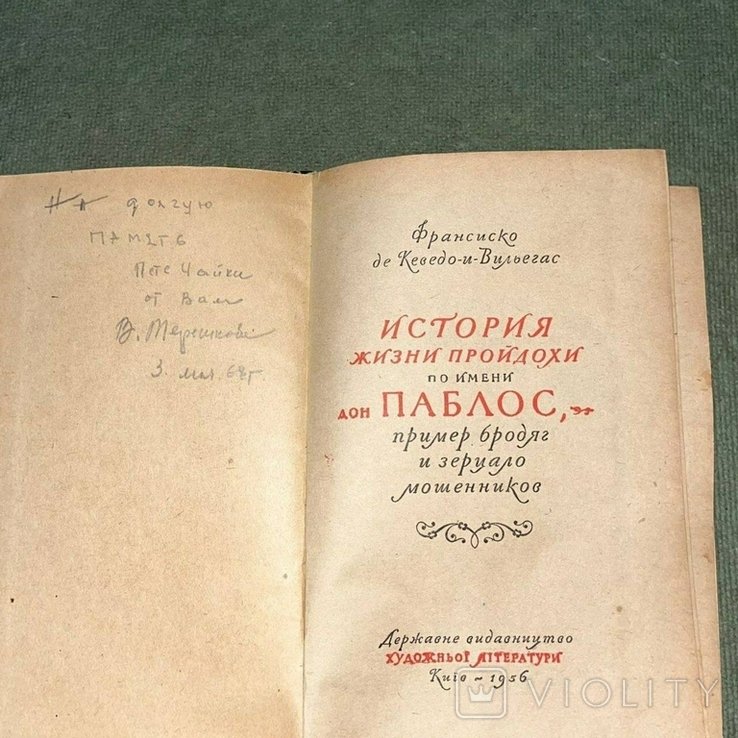 На долгую
память
Пете Чайки
от Вал
В. Терешкове
3. мая 68г.
Франсиско
де Кеведо-и-Вильегас
ИСТОРИЯ
ЖИЗНИ ПРОЙДОХИ
ПО ИМЕНИ
ДОН ПАБЛОС,
пример бродяг
и зерцало
мошенников
Державне видавництво
ХУДОЖНЬОЇ ЛІТЕРАТУРИ
Київ ~ 1956
VIOLITY